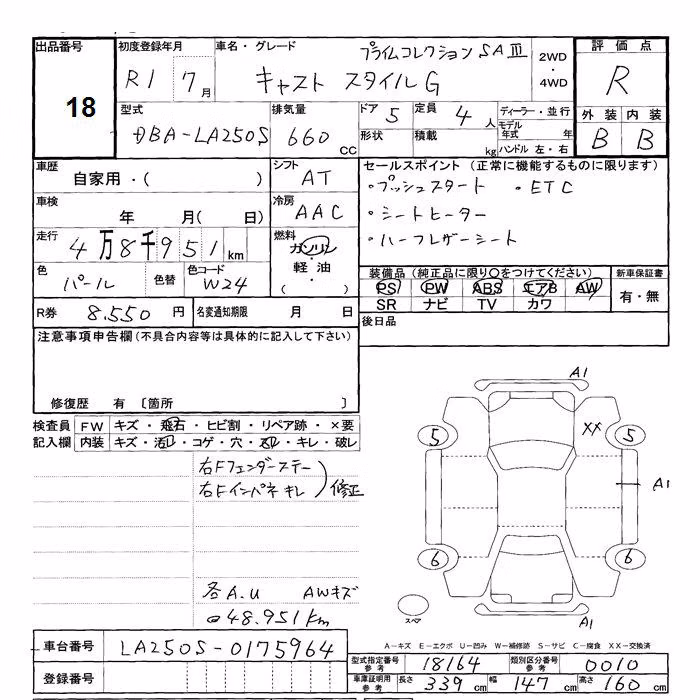 出品番号 初度登録年月 車名・グレード プライムコレクション SAⅢ 2WD・4WD 評価点
18 R1 7月 キャスト スタイルG R
型式 排気量 ドア 5 定員 4人 ディーラー・並行 外装 内装
DBA-LA250S 660 CC 形状 積載 kg モデル年式 年 ハンドル 左・右 B B
車歴 自家用・( ) シフト AT セールスポイント (正常に機能するものに限ります)
・プッシュスタート ・ETC
車検 年 月( 日) 冷房 AAC ・シートヒーター
走行 4万8千951km 燃料 ガソリン・軽油・( ) ・ハーフレザーシート
色 パール 色替 色コード W24 装備品 (純正品に限り○をつけてください) 新車保証書
PS PW ABS エアB AW 有・無
SR ナビ TV カワ
R券 8,550円 名変通知期限 月 日 後日品
注意事項申告欄(不具合内容等は具体的に記入して下さい)
修復歴 有 〔箇所 〕
検査員 FW キズ・飛石・ヒビ割・リペア跡・×要
記入欄 内装 キズ・汚レ・コゲ・穴・スレ・キレ・破レ
右Fフェンダーステー
右Fインパネキレ 修正
各A.U AWキズ
48,951km
A1
XX
5 5
A1
6 6
スペア A1
A-キズ E-エクボ U-凹み W-補修跡 S-サビ C-腐食 XX-交換済
車台番号 LA250S-0175964
登録番号
型式指定番号 参考 18164 類別区分番号 参考 0010
車庫証明用 参考 長さ 339cm 幅 147cm 高さ 160cm